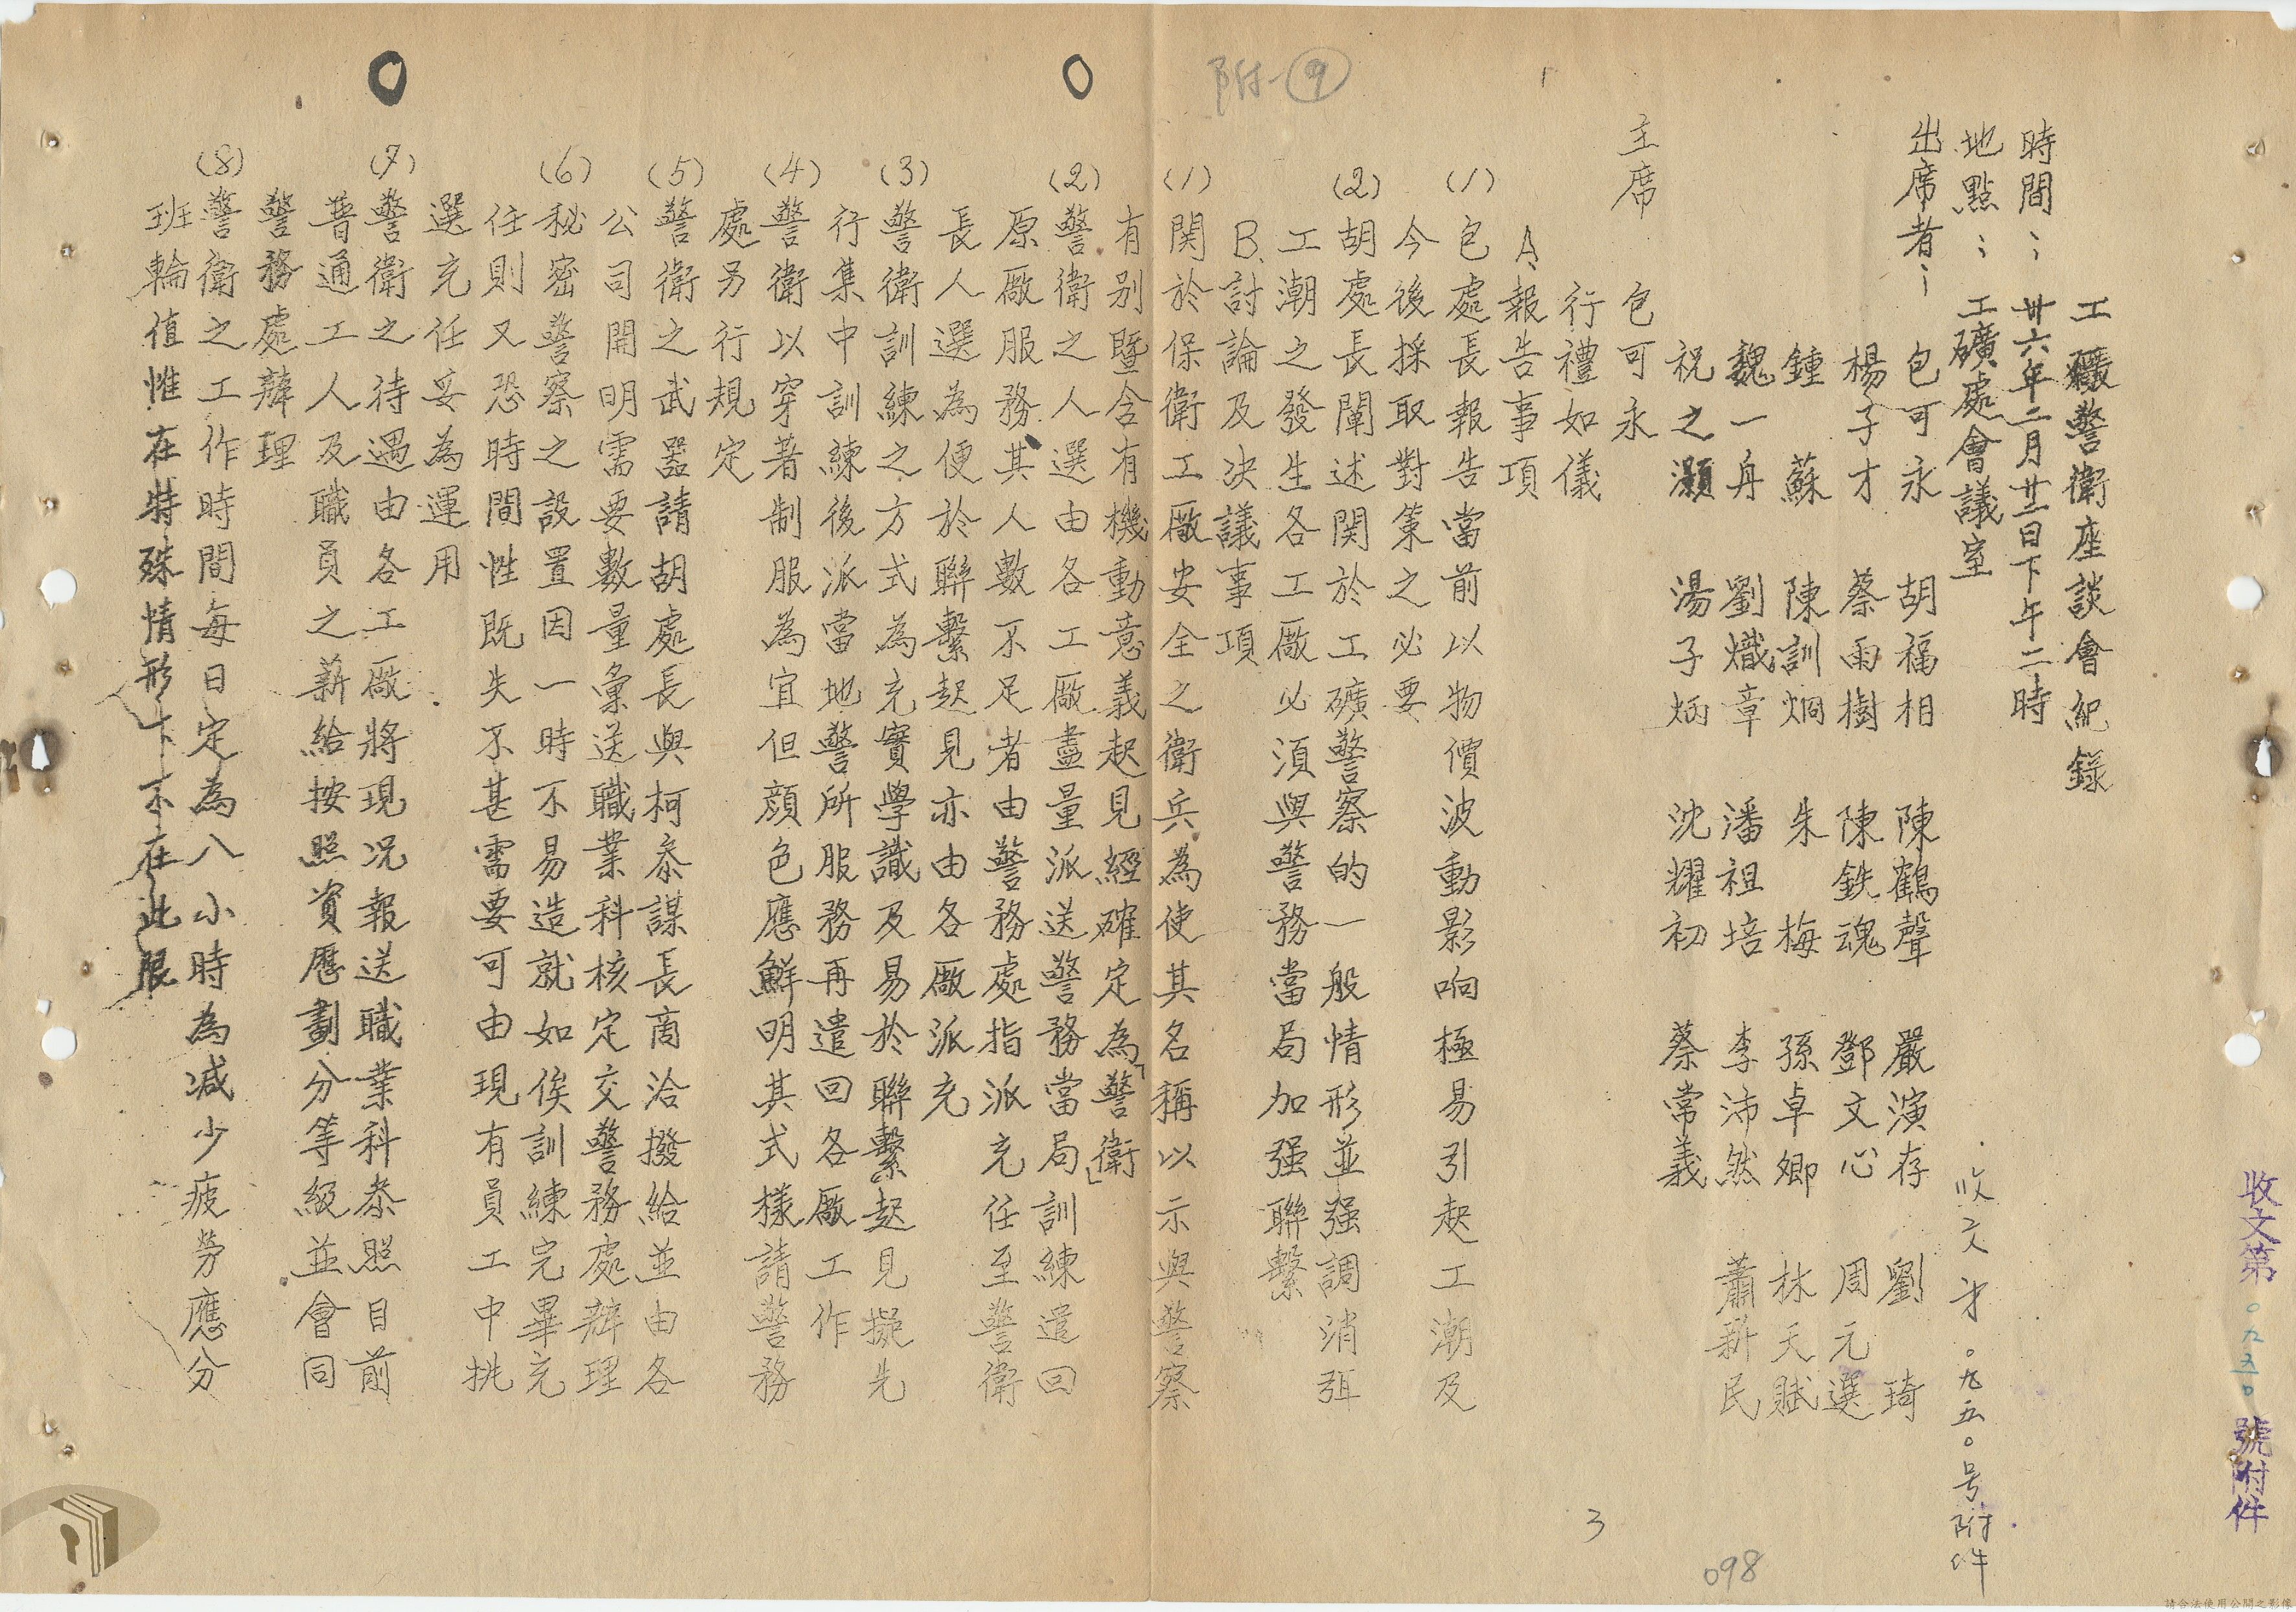 收文第 〇九五〇 號附件
工礦警衛座談會紀錄
時間：卅六年二月廿三日下午二時
地點：工礦處會議室
收文才〇九五〇号附件
出席者：包可永 胡福相 陳鶴聲 嚴演存 劉琦
楊子才 蔡雨樹 陳鉄魂 鄧文心 周元選
鍾蘇 陳訓炯 朱梅 孫卓卿 林天賦
魏一舟 劉熾章 潘祖培 李沛然 蕭新民
祝之灝 湯子炳 沈耀初 蔡常義
主席 包可永
行禮如儀
A、報告事項
(1)包處長報告當前以物價波動影响極易引起工潮及
今後採取對策之必要
(2)胡處長闡述関於工礦警察的一般情形並强調消弭
工潮之發生各工廠必須與警務當局加强聯繫
B、討論及決議事項
(1)関於保衛工廠安全之衛兵為使其名稱以示與警察
有別暨含有機動意義起見經確定為「警衛」
(2)警衛之人選由各工廠盡量派送警務當局訓練遣回
原廠服務其人數不足者由警務處指派充任至警衛
長人選為便於聯繫起見亦由各廠派充
(3)警衛訓練之方式為充實學識及易於聯繫起見擬先
行集中訓練後派當地警所服務再遣回各廠工作
(4)警衛以穿著制服為宜但顏色應鮮明其式樣請警務
處另行規定
(5)警衛之武器請胡處長與柯叅謀長商洽撥給並由各
公司開明需要數量彙送職業科核定交警務處辦理
(6)秘密警察之設置因一時不易造就如俟訓練完畢充
任則又恐時間性既失不甚需要可由現有員工中挑
選充任妥為運用
(7)警衛之待遇由各工廠將現况報送職業科叅照目前
普通工人及職員之薪給按照資歷劃分等級並會同
警務處辦理
(8)警衛之工作時間每日定為八小時為減少疲勞應分
班輪值惟在特殊情形下不在此限
附-⑨
3
098
請合法使用公開之影像